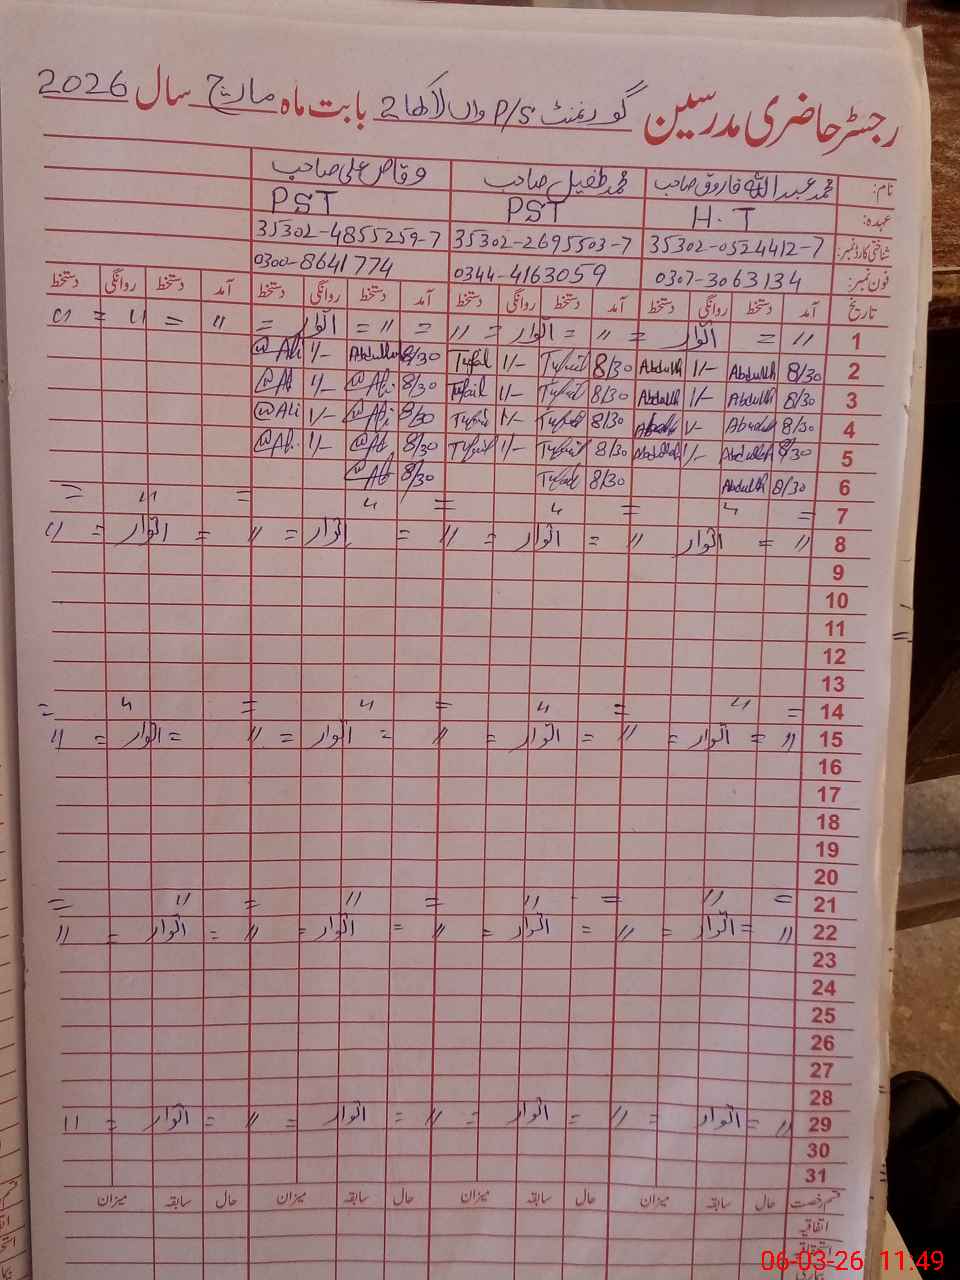 رجسٹر حاضری مدرسین گورنمنٹ P/S واں لاکھا 2 بابت ماہ مارچ سال 2026
نام: محمد عبداللہ فاروق صاحب محمد طفیل صاحب وقاص علی صاحب
عہدہ: H.T PST PST
شناختی کارڈ نمبر: 35302-0524412-7 35302-2695503-7 35302-4855259-7
فون نمبر: 0307-3063134 0344-4163059 0300-8641774
تاریخ آمد دستخط روانگی دستخط آمد دستخط روانگی دستخط آمد دستخط روانگی دستخط آمد دستخط روانگی دستخط
1 〃 = اتوار = 〃 = اتوار = 〃 = 〃 = اتوار = 〃 = 〃 = 〃
2 8/30 Abdullah 1/- Abdullah 8/30 Tufail 1/- Tufail 8/30 Abdullah 1/- @Ali
3 8/30 Abdullah 1/- Abdullah 8/30 Tufail 1/- Tufail 8/30 @Ali 1/- @Ali
4 8/30 Abdullah 1/- Abdullah 8/30 Tufail 1/- Tufail 8/30 @Ali 1/- @Ali
5 8/30 Abdullah 1/- Abdullah 8/30 Tufail 1/- Tufail 8/30 @Ali 1/- @Ali
6 8/30 Abdullah 8/30 Tufail 8/30 @Ali
7 = 〃 = 〃 = 〃 = 〃 =
8 〃 = اتوار 〃 = اتوار = 〃 = اتوار = 〃 = اتوار = 〃
9
10
11
12
13
14 = 〃 = 〃 = 〃 = 〃 =
15 〃 = اتوار = 〃 = اتوار = 〃 = اتوار = 〃 = اتوار = 〃
16
17
18
19
20
21 = 〃 = 〃 = 〃 = 〃 =
22 〃 = اتوار = 〃 = اتوار = 〃 = اتوار = 〃 = اتوار = 〃
23
24
25
26
27
28
29 〃 = اتوار = 〃 = اتوار = 〃 = اتوار = 〃 = اتوار = 〃
30
31
قسم رخصت حال سابقہ میزان حال سابقہ میزان حال سابقہ میزان حال سابقہ میزان
اتفاقیہ
06-03-26 11:49